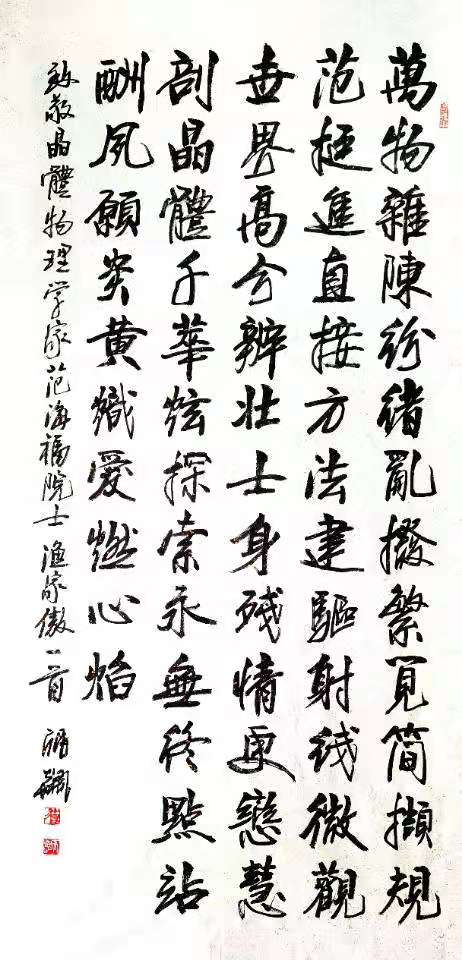 萬物雜陳紛緒亂撥繁覓简擷規
范挺進直接方法建驅射线微觀
世界高分辨壯士身残情更戀慧
剖晶體千華炫探索永無终點站
酬夙願炎黄熾愛燃心焰
致敬晶體物理学家范海福院士 渔家傲一首